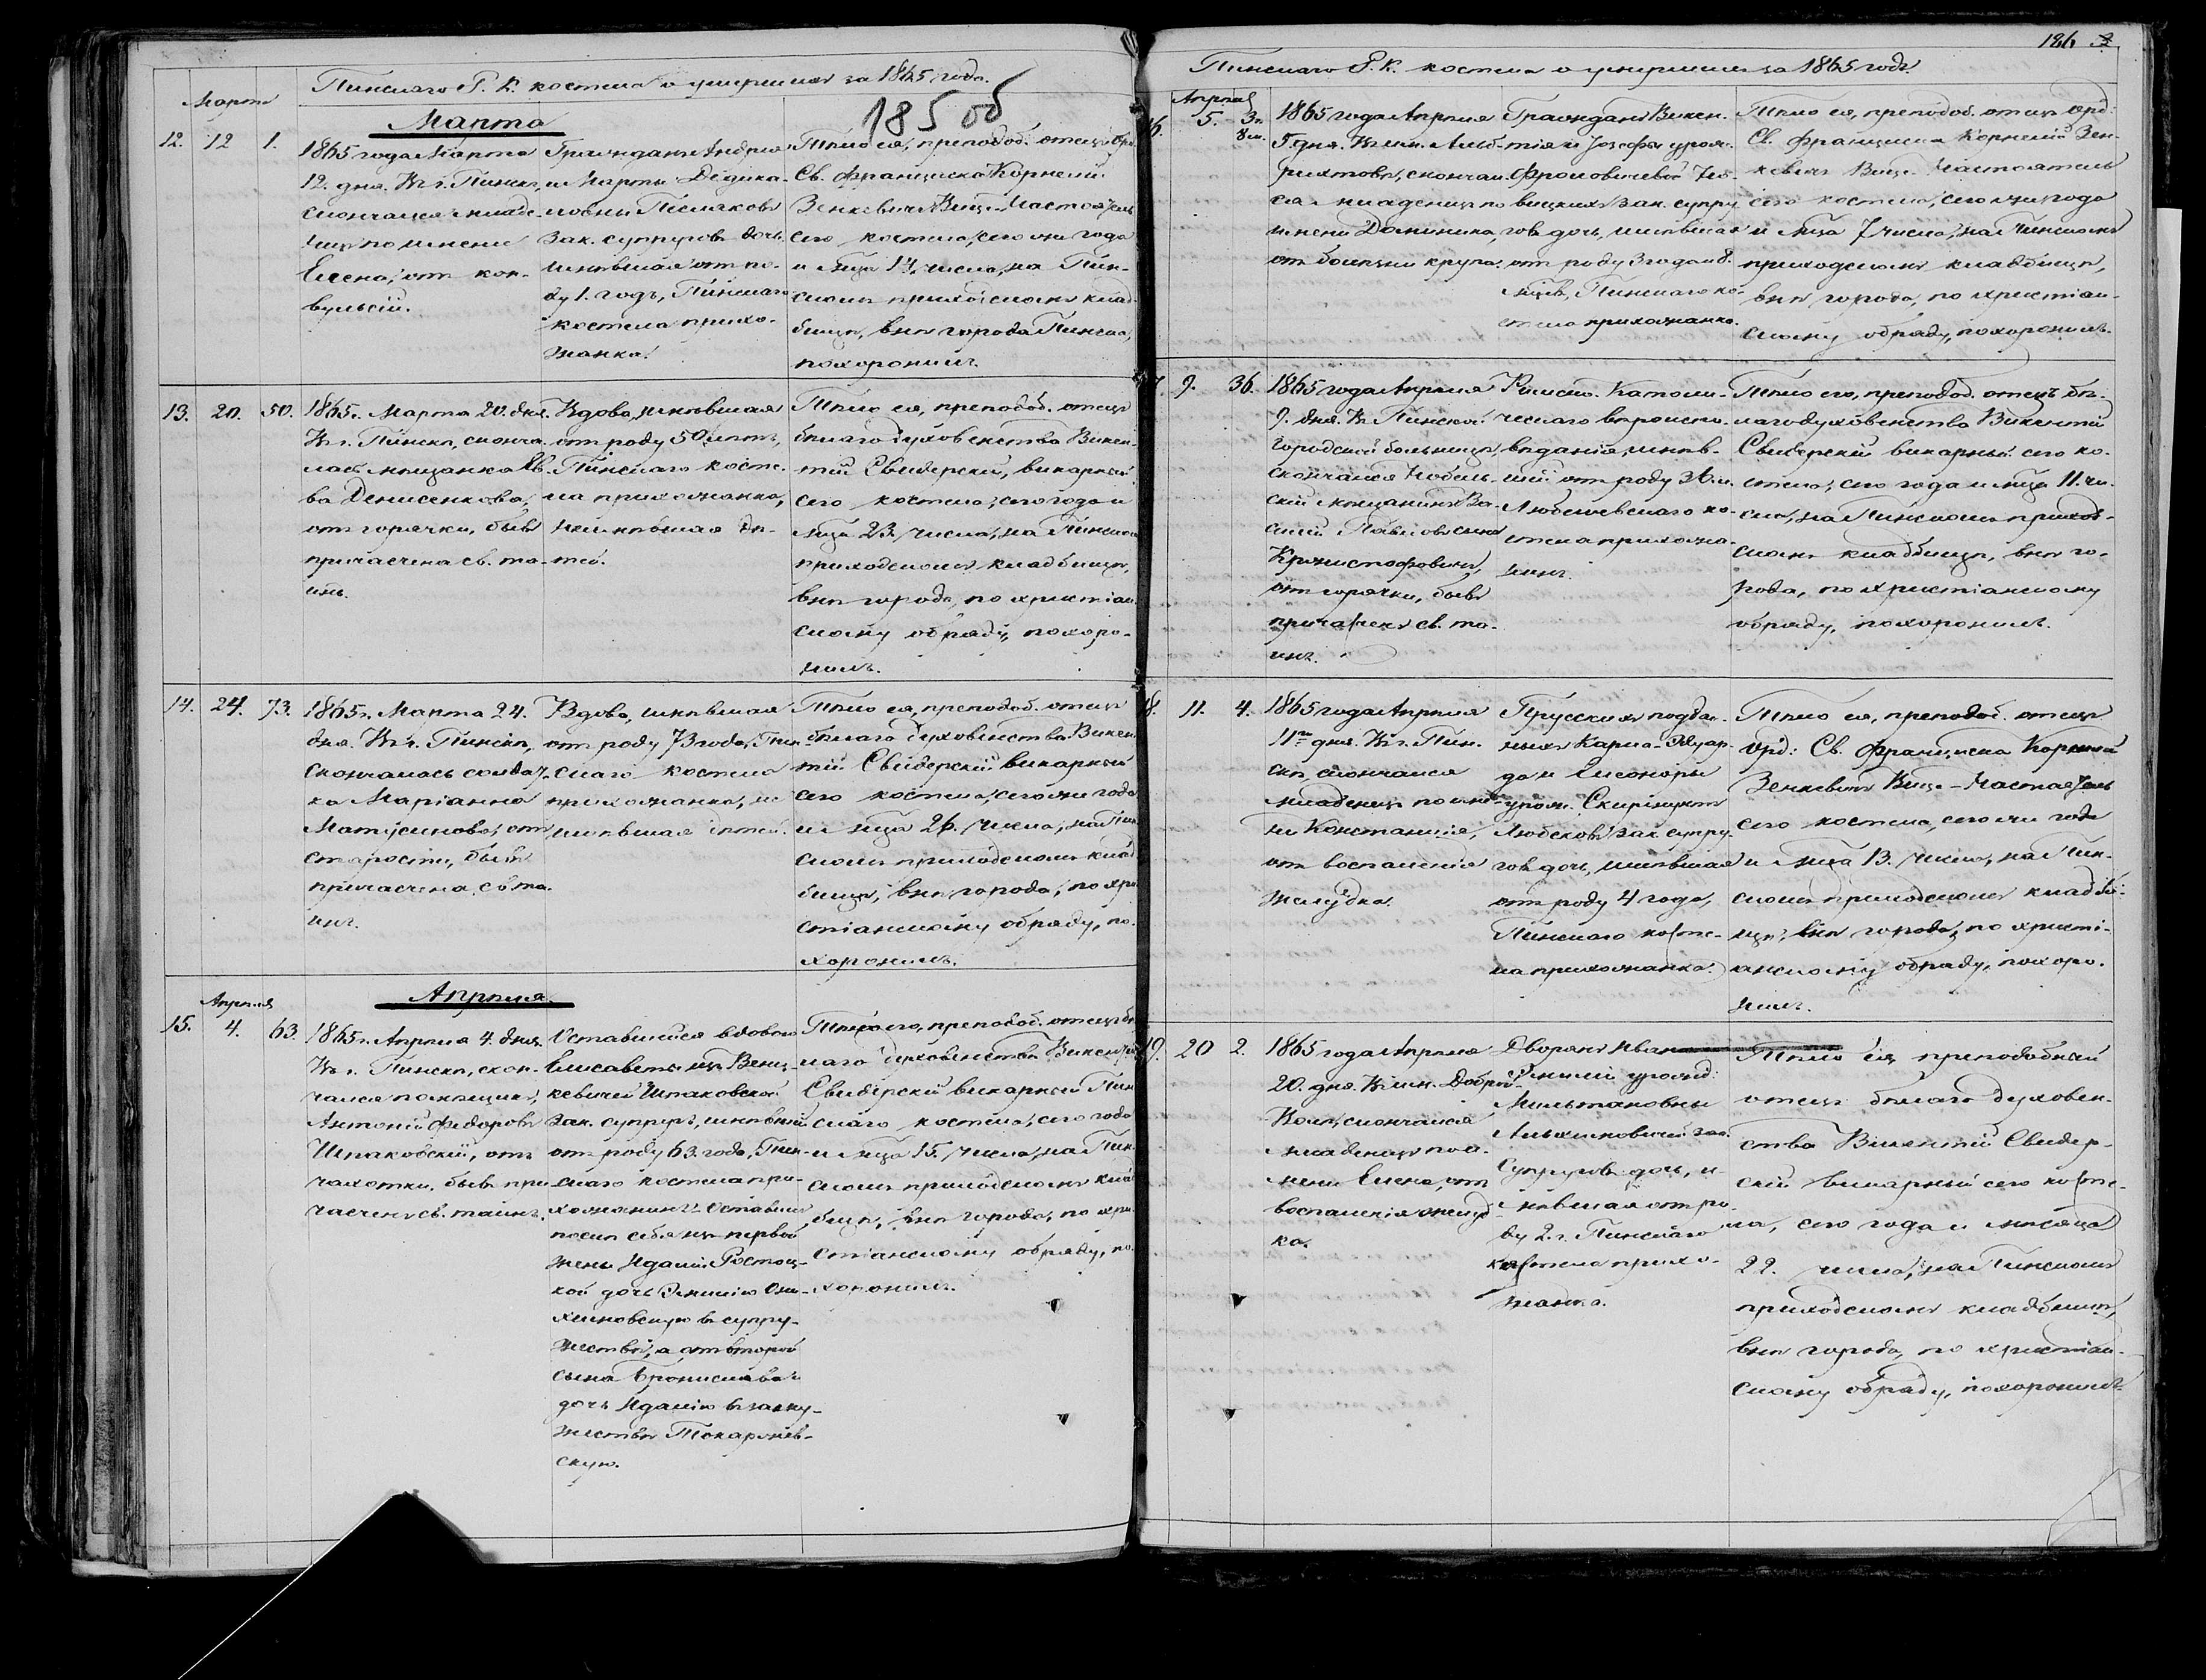 Пинскаго Р. К. костела о умершихъ за 1865 годъ.
185 об
Марта
Марта
12. 12 1.
1865 года Марта
12. дня. Въ г. Пинскѣ,
скончался младе-
нецъ по имени
Елена, от кон-
вульсій.
Гражданъ Андрея
и Марты
зак. супруговъ дочь,
имѣвшая отъ ро-
ду 1. годъ, Пинскаго
костела прихо-
жанка.
Тѣло ея, преподоб. отецъ Орд.
Св. Франциска Корнелій
Зенкевичъ Вице-Настоятель
сего костела, сего же года
и мѣсца 14. числа, на Пин-
скомъ приходскомъ клад-
бищѣ, внѣ города Пинска,
похоронилъ.
13. 20. 50.
1865 г. Марта 20. дня.
Въ г. Пинскѣ, сконча-
лась мѣщанка Ев-
ва Денисенкова,
отъ горячки, бывъ
причащена св. та-
инъ.
Вдова, имѣвшая
отъ роду 50 лѣтъ,
Пинскаго косте-
ла прихожанка,
неимѣвшая дѣ-
тей.
Тѣло ея, преподоб. отецъ
бѣлаго духовенства Викен-
тій Свидерскій, викарный
сего костела, сего года и
мѣца 23. числа, на Пинском
приходскомъ кладбищѣ,
внѣ города, по христіан-
скому обряду, похоро-
нилъ.
14. 24. 73.
1865 г. Марта 24.
дня. Въ г. Пинскѣ,
скончалась солдат-
ка Маріанна
Матусинова, отъ
старости, бывъ
причащена св. та-
инъ.
Вдова, имѣвшая
отъ роду 73 года, Пин-
скаго костела
прихожанка, не
имѣвшая дѣтей.
Тѣло ея, преподоб. отецъ
бѣлаго духовенства Викен-
тій Свидерскій викарный
сего костела, сего же года
и мѣца 26. числа, на Пин-
скомъ приходскомъ клад-
бищѣ, внѣ города, по хри-
стіанскому обряду, по-
хоронилъ.
Апрѣля
Апрѣля.
15. 4. 63.
1865 г. Апрѣля 4. дня.
Въ г. Пинскѣ, скон-
чался помѣщикъ,
Антоній Федоровъ
Шпаковскій, отъ
чахотки, бывъ при-
чащенъ св. таинъ.
Оставшійся вдовою
Елисаветы изъ Венц-
кевичей Шпаковской
зак. супругъ, имѣвшій
отъ роду 63. года, Пин-
скаго костела при-
хожанинъ. Оставилъ
послѣ себя изъ первой
жены Идаліи Ростоц-
кой дочь Эмилію Оль-
хлиновскую въ супру-
жествѣ, а отъ второй
сына Бронислава и
дочь Идалію въ заму-
жествѣ Токаржев-
скую.
Тѣло его, преподоб. отецъ бѣ-
лаго духовенства Викентій
Свидерскій викарный Пин-
скаго костела, сего года
и мѣца 15. числа, на Пин-
скомъ приходскомъ клад-
бищѣ, внѣ города, по хри-
стіанскому обряду, по-
хоронилъ.
126
Пинскаго Р. К. костела о умершихъ за 1865 годъ.
Апрѣля
16. 5. 3 г. 8 м.
1865 года Апрѣля
5. дня. Въ им.
скончал-
ся младенецъ по
имени Доминика,
отъ болѣзни крупа.
Гражданъ Викен-
тія и Іозефы урож.
Фроловичевой
зак. супру-
говъ дочь, имѣвшая
отъ роду 3 года и 8.
мѣсцѣв, Пинскаго ко-
стела прихожанка.
Тѣло ея, преподоб. отецъ Орд.
Св. Франциска Корнелій Зен-
кевичъ Вице-Настоятель
сего костела, сего же года
и мѣца 7 числа, на Пинскомъ
приходскомъ кладбищѣ,
внѣ города, по христіан-
скому обряду, похоронилъ.
17. 9. 36.
1865 года Апрѣля
9. дня. Въ Пинской
городской больницѣ,
скончался Нобель-
скій мѣщанинъ Ва-
силій Павловъ сынъ
Кржистофовичъ,
отъ горячки, бывъ
причащенъ св. та-
инъ.
Римско-Католи-
ческаго вѣроиспо-
вѣданія, имѣв-
шій отъ роду 36 л.
Любешевскаго ко-
стела прихожа-
нинъ.
Тѣло его, преподоб. отецъ бѣ-
лаго духовенства Викентій
Свидерскій викарный сего ко-
стела, сего года и мѣца 11. чи-
сла, на Пинскомъ приход-
скомъ кладбищѣ, внѣ го-
рода, по христіанскому
обряду, похоронилъ.
18. 11. 4.
1865 года Апрѣля
11го дня. Въ г. Пин-
скѣ, скончался
младенецъ по име-
ни Констанція,
отъ воспаленія
желудка.
Прусскихъ поддан-
ныхъ Карла-Эдуар-
да и Элеоноры
урож.
Любековъ зак. супру-
говъ дочь, имѣвшая
отъ роду 4 года,
Пинскаго косте-
ла прихожанка.
Тѣло ея, преподоб. отецъ
Орд: Св. Франциска Корнелій
Зенкевичъ Вице-Настоятель
сего костела, сего же года
и мѣца 13. числа, на Пин-
скомъ приходскомъ кладби-
щѣ, внѣ города, по христі-
анскому обряду, похоро-
нилъ.
19. 20 2.
1865 года Апрѣля
20. дня. Въ им. Доброй-
Волѣ, скончался
младенецъ по и-
мени Елена, отъ
воспаленія желуд-
ка.
Дворянъ Ивана
и Эмиліи урожд:
супруговъ дочь, и-
мѣвшая отъ ро-
ду 2. г. Пинскаго
костела прихо-
жанка.
Тѣло ея, преподобный
отецъ бѣлаго духовен-
ства Викентій Свидер-
скій викарный сего косте-
ла, сего года и мѣсяца
22. числа, на Пинскомъ
приходскомъ кладбищѣ,
внѣ города, по христіан-
скому обряду, похоронилъ.